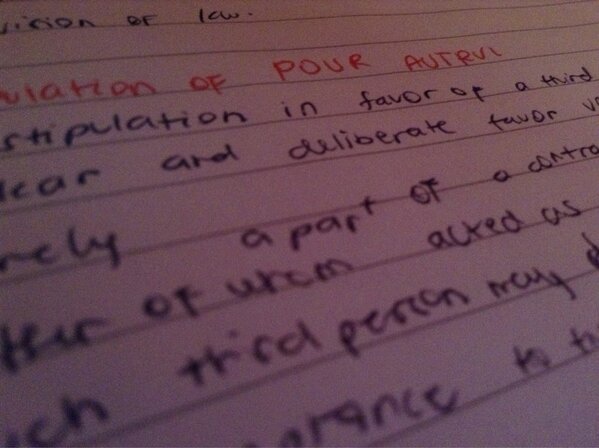 vision of law.
ulation of POUR AUTRUI
stipulation in favor of a third
lear and deliberate favor
rely a part of a contra
ther of whom acted as
ich third person may d
ptance to